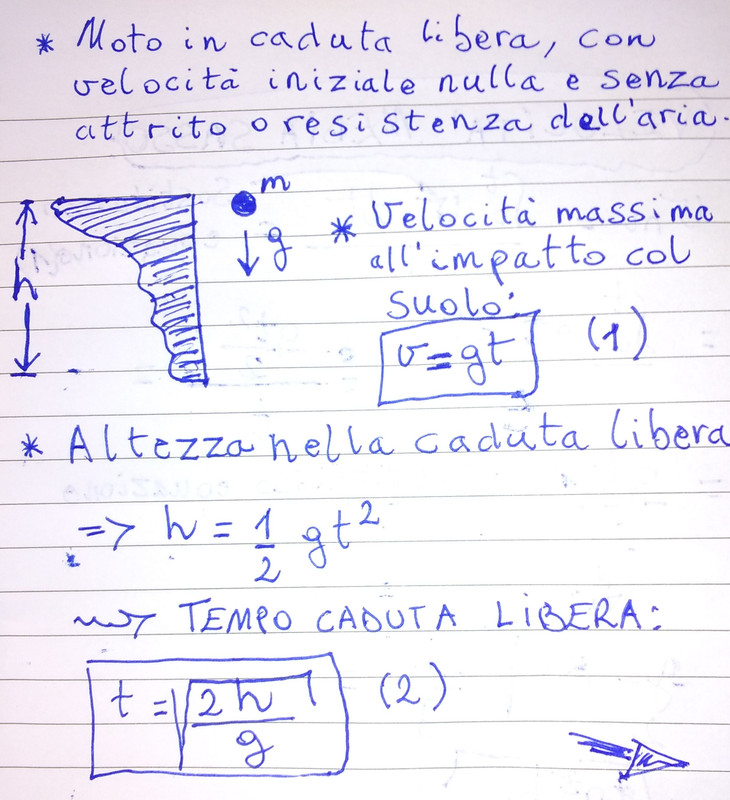 * Moto in caduta libera, con
velocità iniziale nulla e senza
attrito o resistenza dell'aria.
m
g
h
* Velocità massima
all'impatto col
suolo:
v=gt (1)
* Altezza nella caduta libera
=> h = 1/2 gt²
~> TEMPO CADUTA LIBERA:
t = √(2h/g) (2)